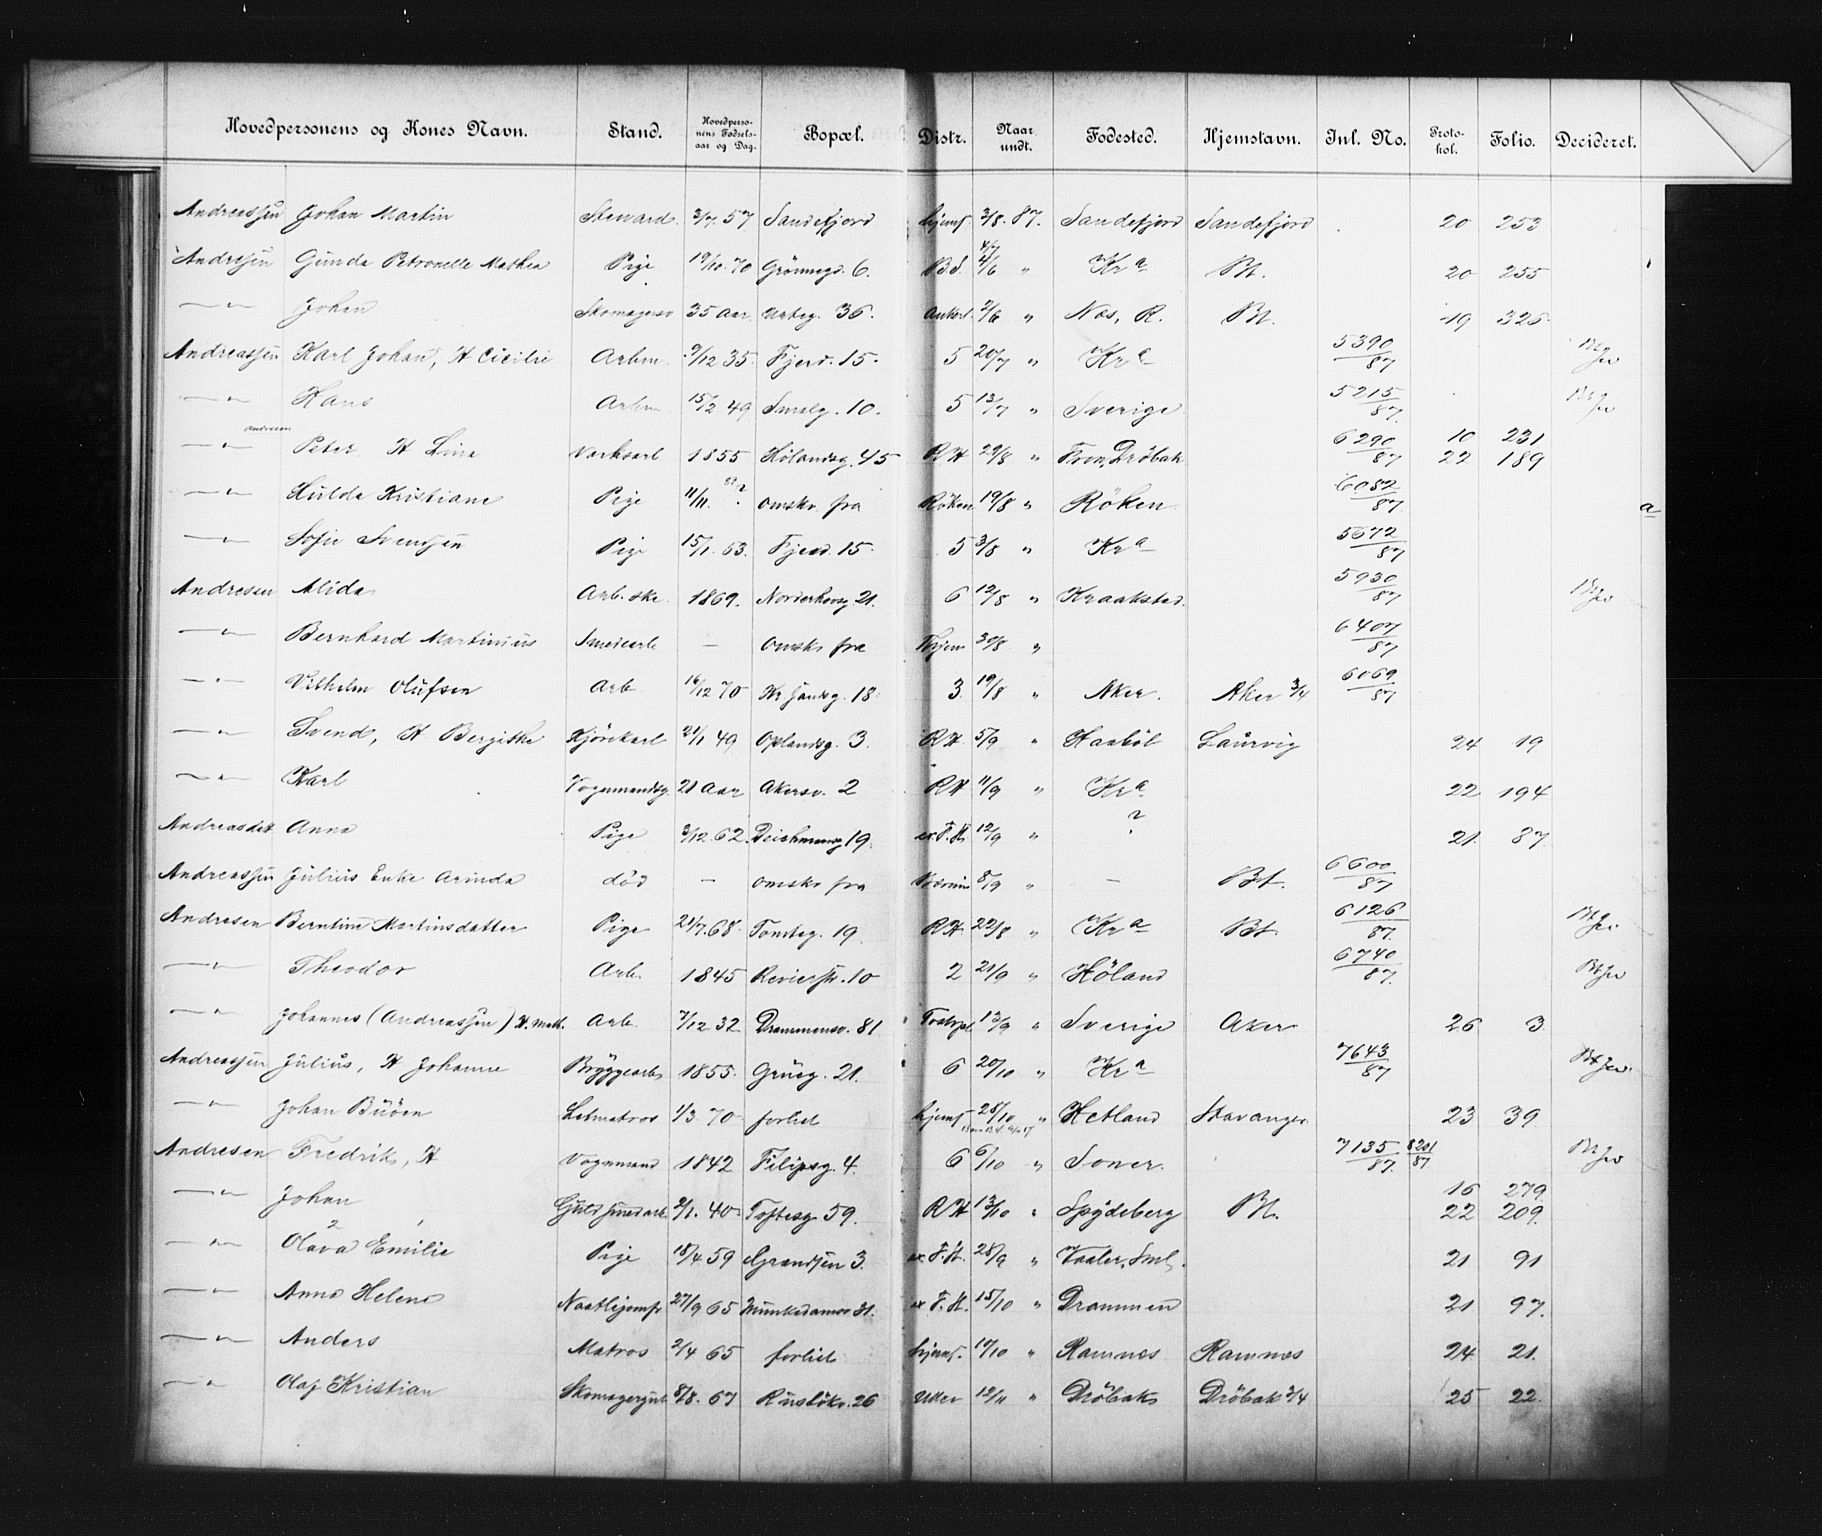 Hovedpersonens og Kones Navn. Stand. Hovedperso-nens Fødsels-aar og Dag. Bopæl. Distr. Naar undt. Fødested. Hjemstavn. Inl. No. Proto-kol. Folio. Decideret.
Andreassen Johan Martin Steward 3/7. 57 Sandefjord hjemf. 3/8. 87. Sandefjord Sandefjord 20 253
Andresen Gunda Petronelle Mathea Pige 19/10. 70 Grönnegd. 6. 4/6 " Kr a Bt. 20 255
—"— Johan Skomagersv 35 Aar Urteg. 36. 2/6 " Næs, R. Bt. 19 326
Andreassen Karl Johan, H Cicilie Arbm 9/12 35 Fjerd. 15. 5 20/7 " Kr a 5390/87
—"— Hans Arbm 15/2 49 Smalg. 10. 5 13/7 " Sverige 5215/87.
—"— Andresen Peter H Line Værksarb 1855 Hölandsg. 45 RH 29/8 " Fron, Dröbak 6290/87 10 231
22 189
—"— Hulda Kristiane Pige 11/11. omskr. fra Röken 19/8 " Röken 6082/87. a
—"— Sofie Svendsen Pige 15/1. 63. Fjerd. 15. 5 3/8 " Kr a 5672/87
Andresen Alida Arb. ske. 1869. Norderhovsg 21. 6 12/8 " Kraakstad. 5930/87
—"— Bernhard Martinius Smedearb — omskr fra 30/8 " 6407/87
—"— Vilhelm Olüfsen Arb 16/12 70 18 3. 19/8 " Aker. Aker 3/4 6069/87
—"— Svend, H Bergithe Kjörekarl 21/1 49 Oplandsg. 3. RH 5/9 " Haaböl Laürvig 24 19
—"— Karl Vognmandsg. 21 Aar Akersv. 2 RH 11/9 " Kr a 22 194
Andreasdat Anna Pige 3/12. 62. Deichmansg 19. ex. F.H. 12/9 " ? 21. 87.
Andreassen Julius Enke Arinda död — omskr fra 8/9 " — Bt. 6600/87
Andresen Berntine Martinsdatter Pige 21/7. 68. Tomteg. 19. RH. 22/8 " Kr a Bt. 6126/87.
—"— Theodor Arb. 1845 Revierstr. 10 2 21/9 " Höland 6740/87.
—"— Johannes (Andreassen) H. Math. Arb. 7/12 32 Drammensv. 81 13/9 " Sverige Aker 26 3
Andreassen Julius, H Johanne Bryggearb 1855. Grüeg. 21. 6 20/10 " Kr a 7643/87
—"— Johan Büöen Letmatros 1/3 70 forlist hjemf. 25/10 " Hetland Stavanger 23 39
Andresen Fredrik, H Vognmand 1842 Filipsg. 4. 6 6/10 " Soner. 7135/87. 8201/87
—"— Johan Guldsmedarb. 2/1. 40 Toftesg 59. RH 13/10 " Spydeberg Bt. 16 279.
22 209.
—"— Olava Emilie Pige 18/4 59 Grændsen 3. ex. F.H. 28/9 " Vaaler, Sml. 21 91
—"— Anna Helene Næstlijomfr 27/9 65 Munkedamsv 31. ex F.H. 15/10 " Drammen 21 97.
—"— Anders Matros 2/4 65 forlist hjemf. 17/10 " Ramnæs Ramnæs 24 21.
—"— Olaf Kristian Skomagergut 8/8. 67 Ruslökv. 26 12/11 " Dröbak Dröbak 3/4 25 22.